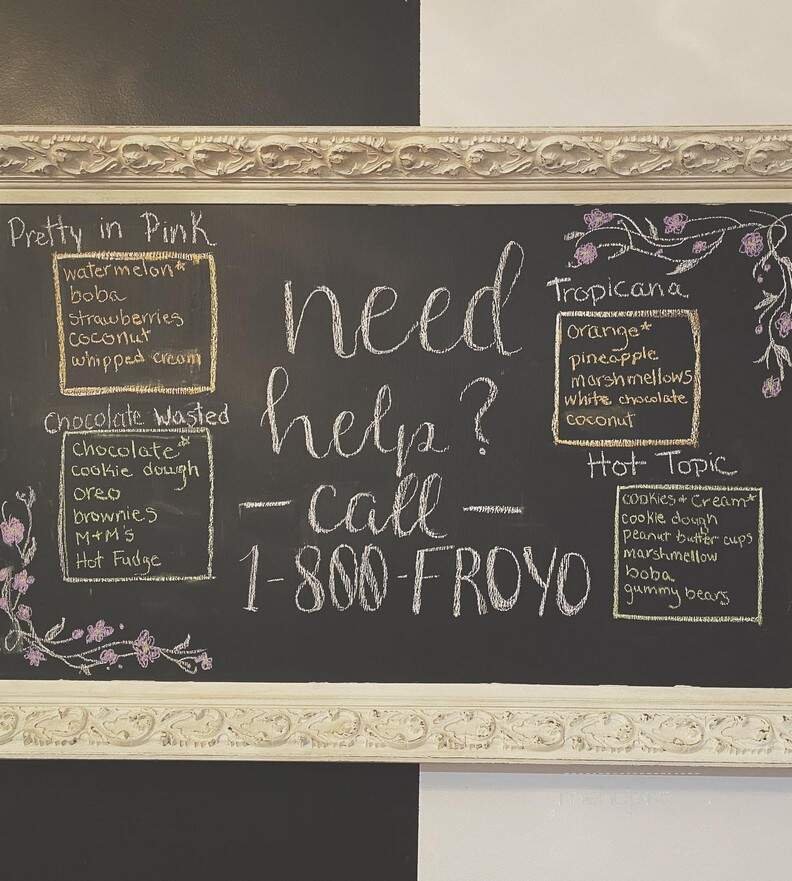 Pretty in Pink
watermelon*
boba
strawberries
coconut
whipped cream
Chocolate Wasted
chocolate*
cookie dough
oreo
brownies
M+M's
Hot Fudge
need
help?
- call -
1-800-FROYO
Tropicana
orange*
pineapple
marshmellows
white chocolate
coconut
Hot Topic
cookies + cream*
cookie dough
peanut butter cups
marshmellow
boba
gummy bears